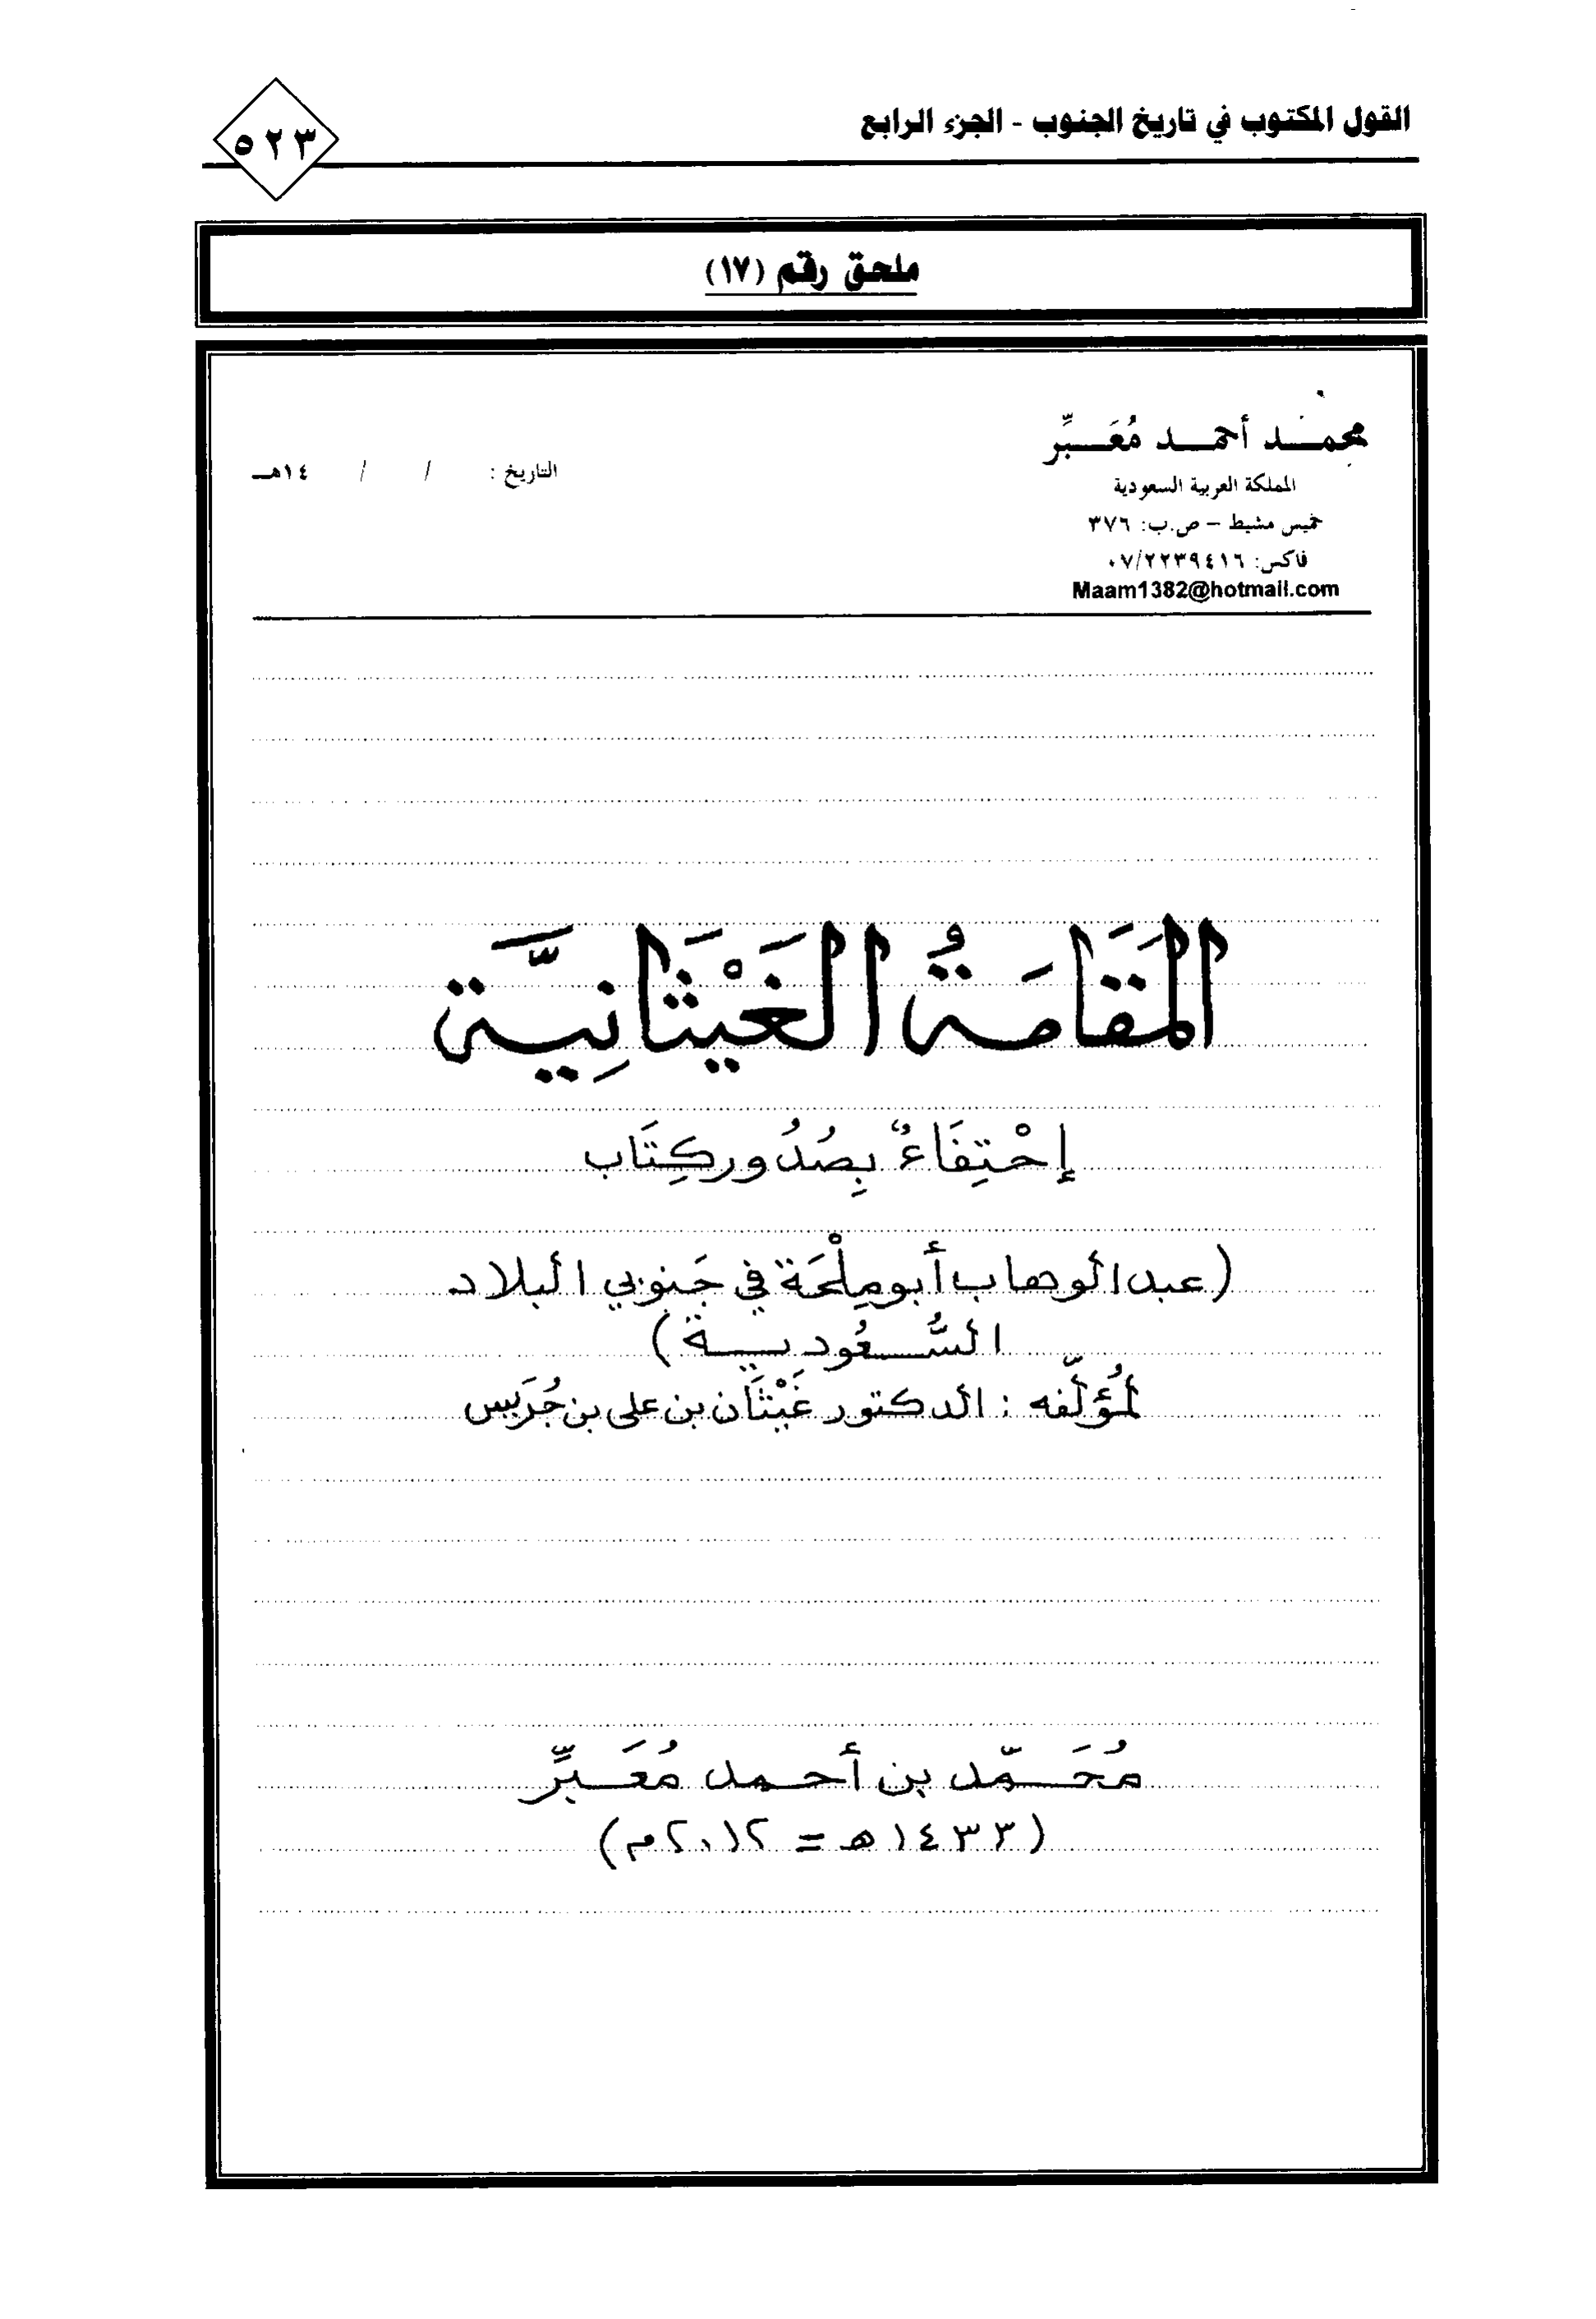 القول المكتوب في تاريخ الجنوب - الجزء الرابع
٥٢٣
ملحق رقم (١٧)
محمد أحمد مُعَبِّر
المملكة العربية السعودية
خميس مشيط – ص.ب: ٣٧٦
فاكس: ٠٧/٢٢٣٩٤١٦
Maam1382@hotmail.com
التاريخ : / / ١٤هـ
المَقَامَةُ الغَيْثَانِيَّة
إحْتِفَاءٌ بِصُدُور كِتَاب
(عبد الوهاب أبو مِلْحَة في جَنوبي البلاد
السُّعُودية)
لمُؤلِّفه : الدكتور غَيْثَان بن علي بن جُرَيس
مُحَمّد بن أحمد مُعَبِّر
(١٤٣٣ه = ٢٠١٢م)